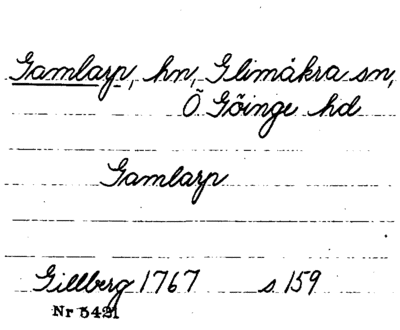 Gamlarp, hn, Glimåkra sn,
Ö Göinge hd
Gamlarp
Gillberg 1767 s 159
Nr 5421